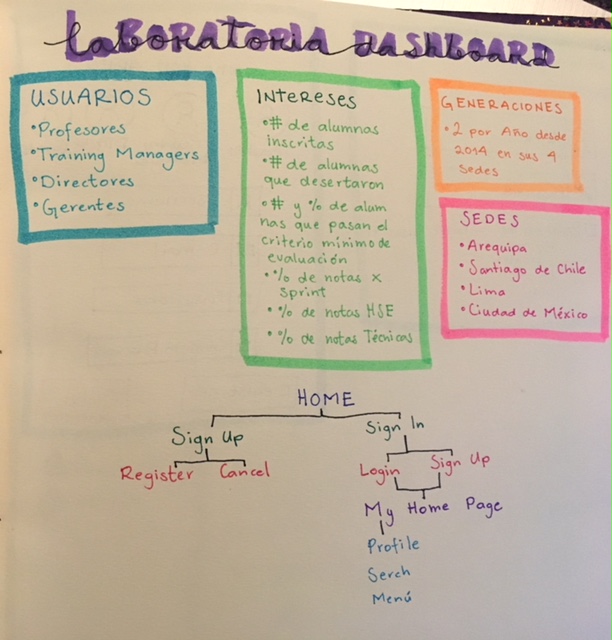 LaBORatoRIa DasHBOARD
USUARIOS
• Profesores
• Training Managers
• Directores
• Gerentes
INTERESES
• # de alumnas
inscritas
• # de alumnas
que desertaron
• # y % de alum
nas que pasan el
criterio mínimo de
evaluación
• % de notas x
sprint
• % de notas HSE
• % de notas Técnicas
GENERACIONES
• 2 por Año desde
2014 en sus 4
sedes
SEDES
• Arequipa
• Santiago de Chile
• Lima
• Ciudad de México
HOME
Sign Up
Sign In
Register Cancel
Login Sign Up
My Home Page
Profile
Serch
Menú